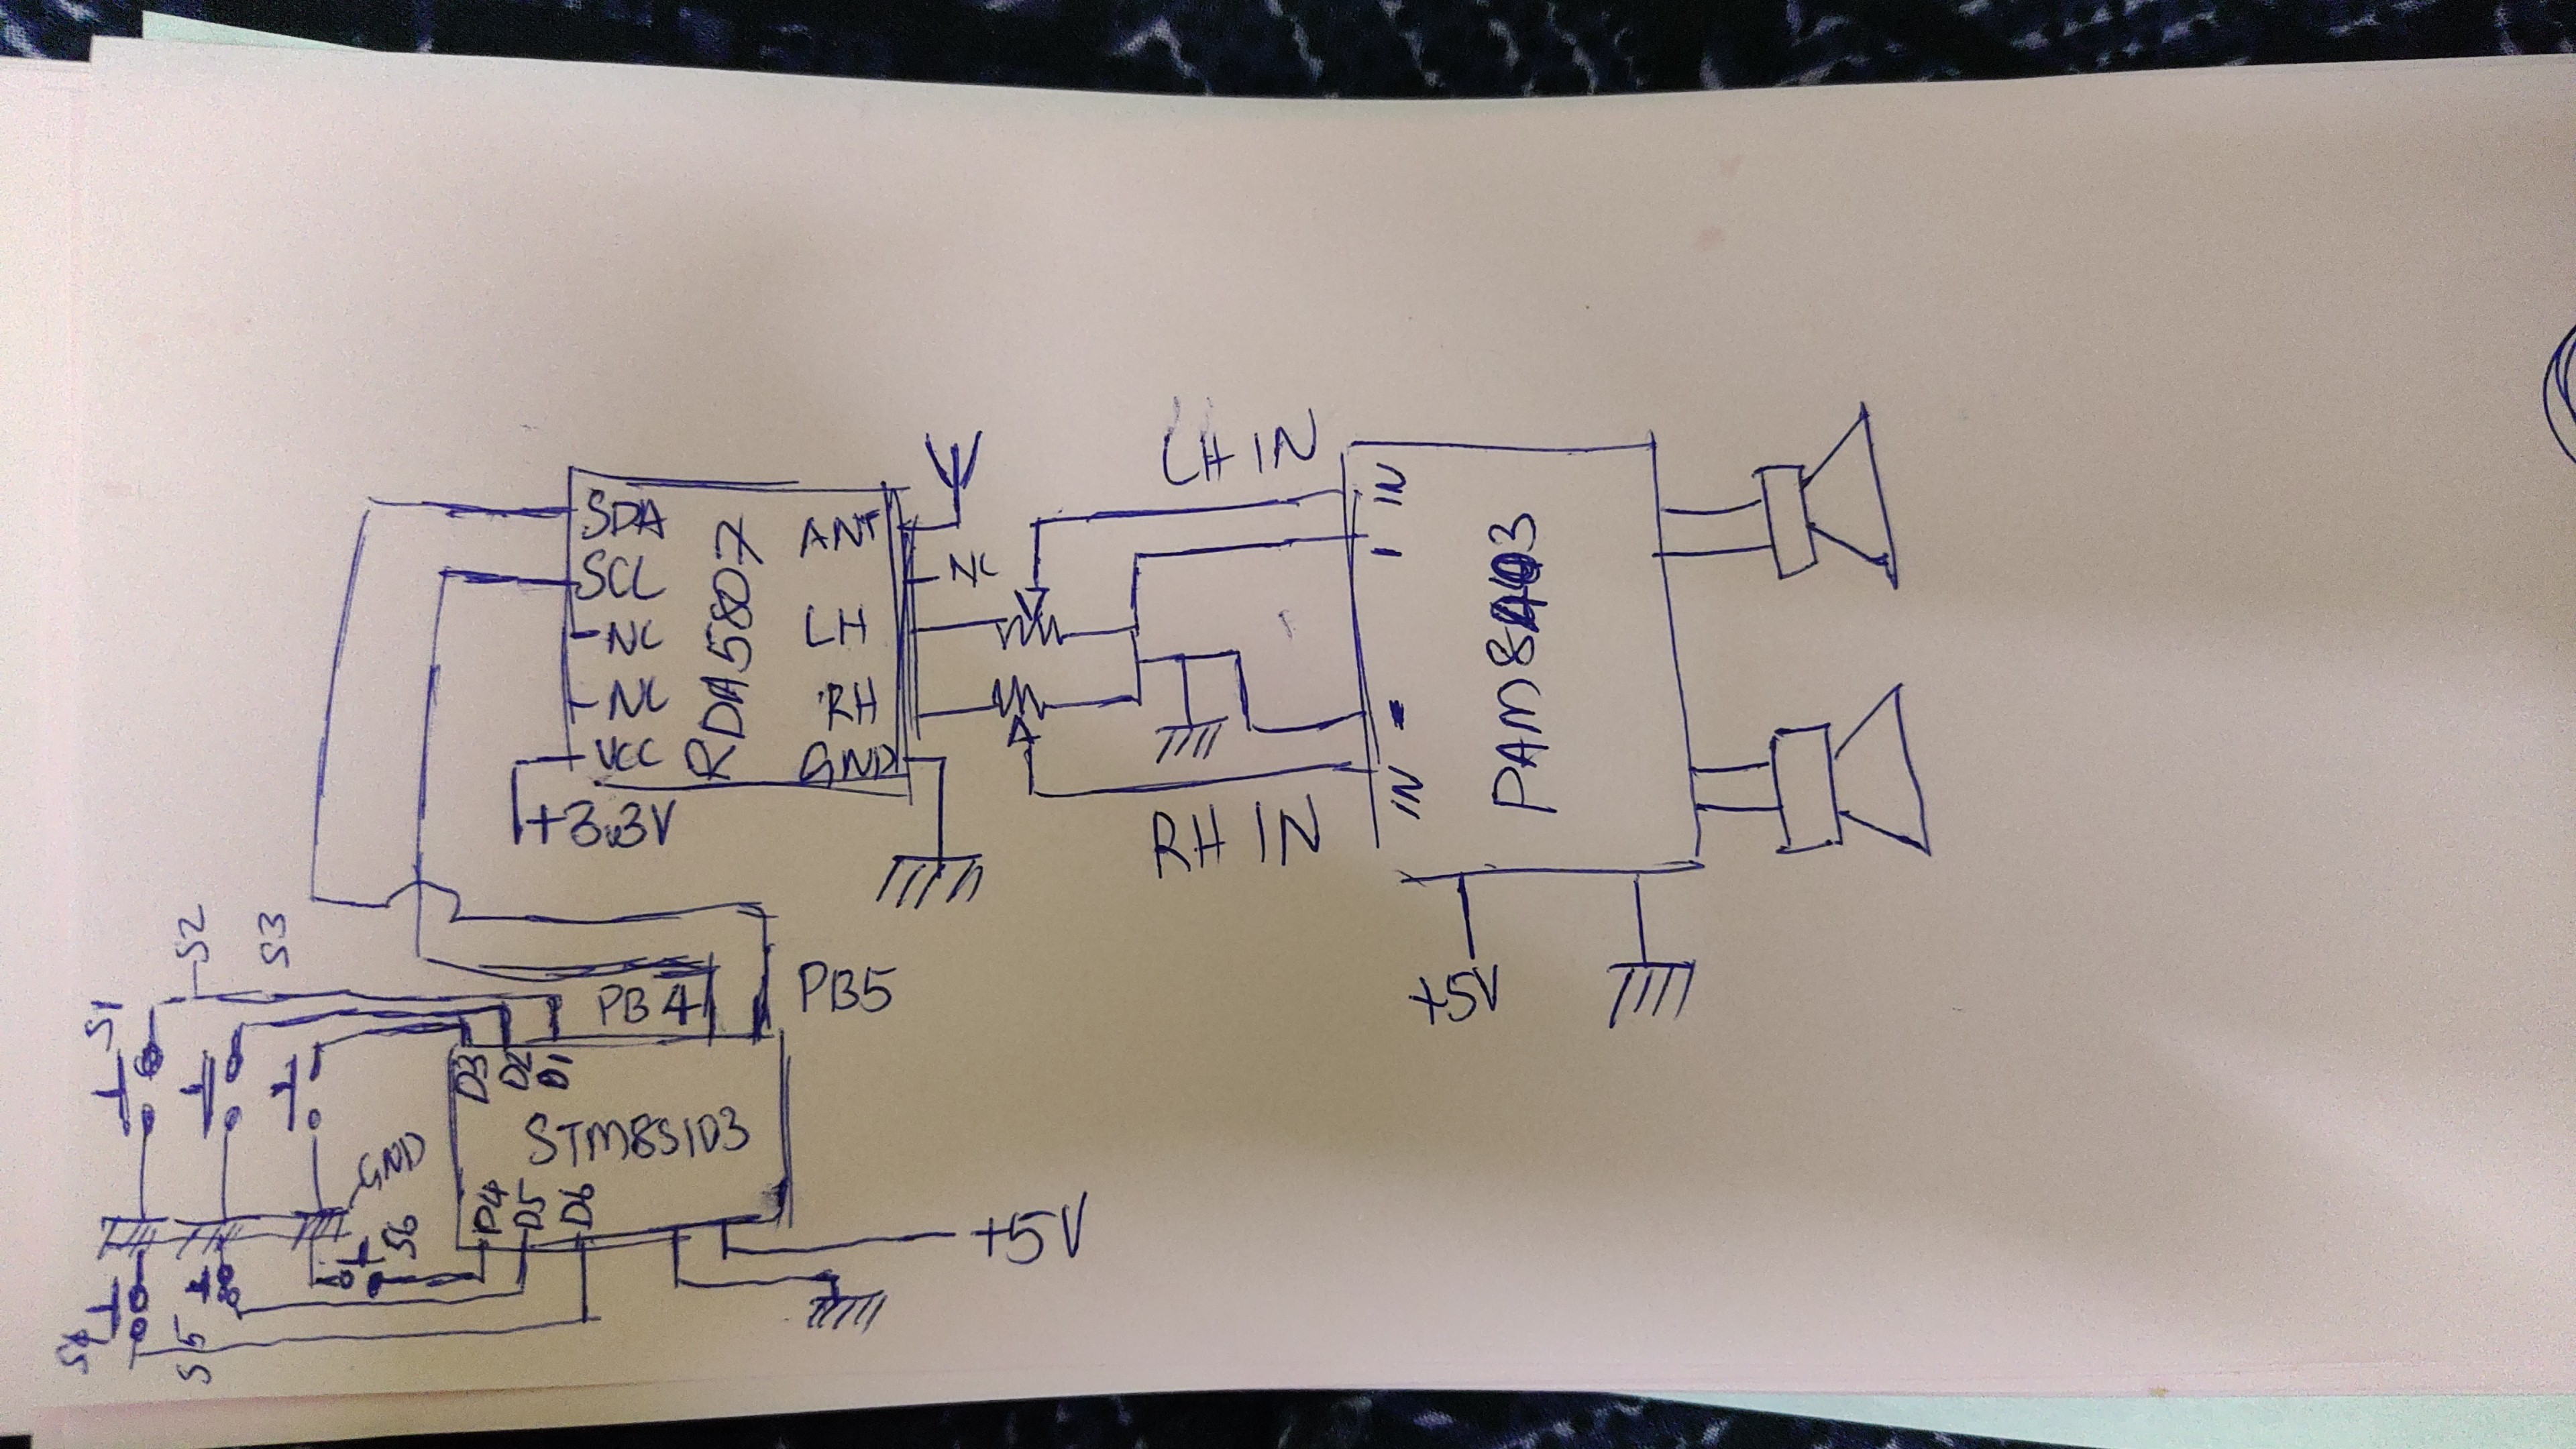 S4
S1
S5
S2
S3
S6
GND
D4
D5
D6
D3
D2
D1
STM8S103
PB4
PB5
+5V
+3.3V
VCC
-NC
-NC
SCL
SDA
RDA5807
GND
RH
LH
ANT
-NC
RH IN
LH IN
IN
-
I
IN
+5V
PAM8403